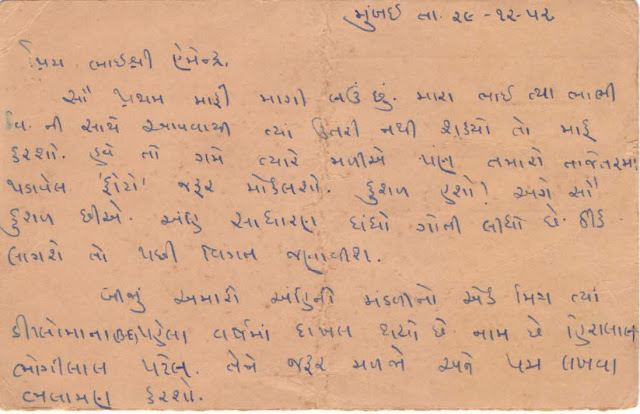 મુંબઈ તા. ૨૯-૧૨-૫૨
પ્રિય ભાઈશ્રી હેમેન્દ્ર,
સૌ પ્રથમ માફી માગી લઉં છું. મારા ભાઈ ત્થા ભાભી
વિ. ની સાથે આવવાથી ત્યાં ઉતરી નથી શક્યો તો માફ
કરશો. હવે તો ગમે ત્યારે મળીએ પણ તમારો તાજેતરમાં
પડાવેલ 'ફોટો' જરૂર મોકલશો. કુશળ હશો! અત્રે સૌ
કુશળ છીએ. અહિં સાધારણ ધંધો ગોતી લીધો છે. ઠીક
લાગશે તો પછી વિગત જણાવીશ.
બીજું અમારી અહિંની મંડળીનો એક મિત્ર ત્યાં
ડીપ્લોમાના પહેલા વર્ષમાં દાખલ થયો છે. નામ છે હિરાલાલ
ભોગીલાલ પટેલ. તેને જરૂર મળજો અને પત્ર લખવા
ભલામણ કરશો.